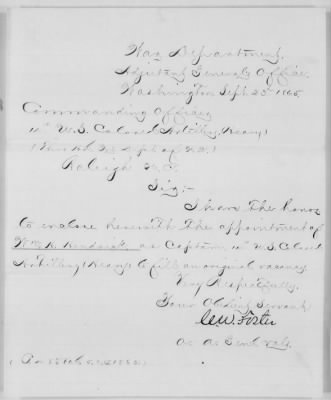 War Department,
Adjutant General's Office,
Washington Sept 25th 1865
Commanding Officer
U.S. Colored Artillery, (Heavy)
Raleigh N.C.
Sir:-
I have the honor
to enclose herewith the appointment of
Wm. H. Kendrick, as Captain, U.S. Colored
Artillery (Heavy) to fill an original vacancy.
Very Respectfully,
Your Obedient Servant
C.W. Foster